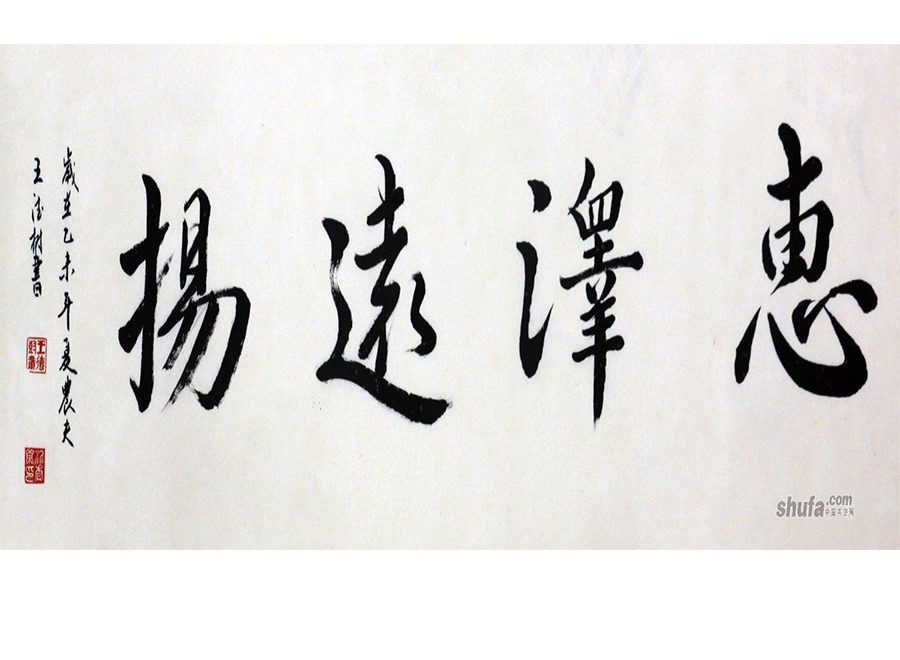 惠澤遠揚
歲在乙未年夏農夫
王德樹書
shufa.com
中国书法网